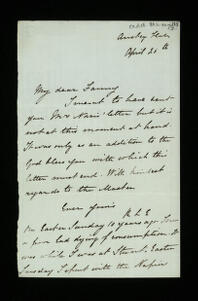 April 20th
My dear Fanny
I meant to have sent
you Mrs Nairs' letter but it is
not at this moment at hand.
It was only as an addition to the
God bless you with which this
letter must end. With kindest
regards to the Master
Ever yours
R L E
On Easter Sunday 10 years ago I saw
a poor lad dying of consumption. It
was while I was at Easter
Tuesday I spent with the Napier